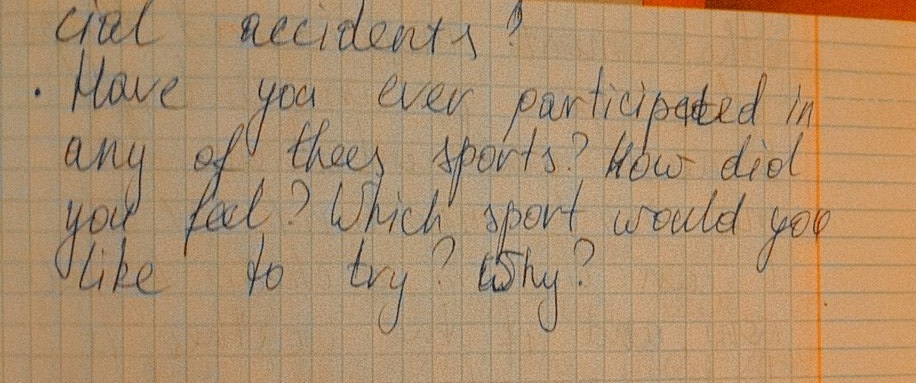 cial accidents?
. Have you ever participated in
any of thees sports? How did
you feel? Which sport would you
like to try? Why?